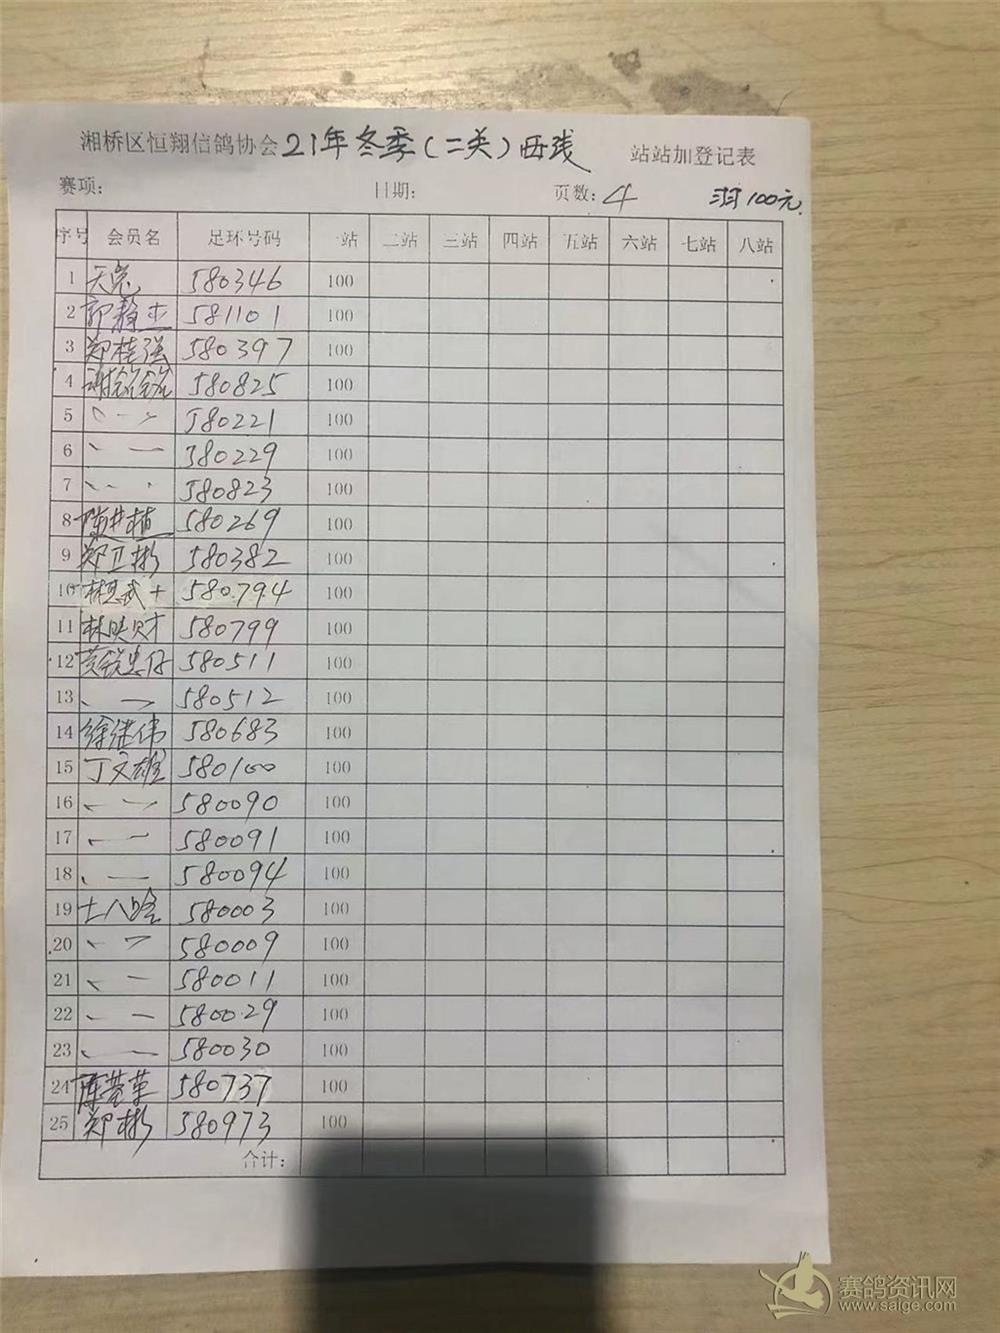 湘桥区恒翔信鸽协会 21年冬季(二关)西线 站站加登记表
赛项: 日期: 页数: 4 羽100元
序号 会员名 足环号码 一站 二站 三站 四站 五站 六站 七站 八站
1 天亮 580346 100
2 581101 100
3 郑桂强 580397 100
4 580825 100
5 580221 100
6 580229 100
7 580823 100
8 580269 100
9 郑卫彬 580382 100
10 580794 100
11 林映财 580799 100
12 黄锐忠仔 580511 100
13 580512 100
14 徐继伟 580683 100
15 丁文雄 580100 100
16 580090 100
17 580091 100
18 580094 100
19 580003 100
20 580009 100
21 580011 100
22 580029 100
23 580030 100
24 580737 100
25 郑彬 580973 100
合计:
赛鸽资讯网
www.saige.com